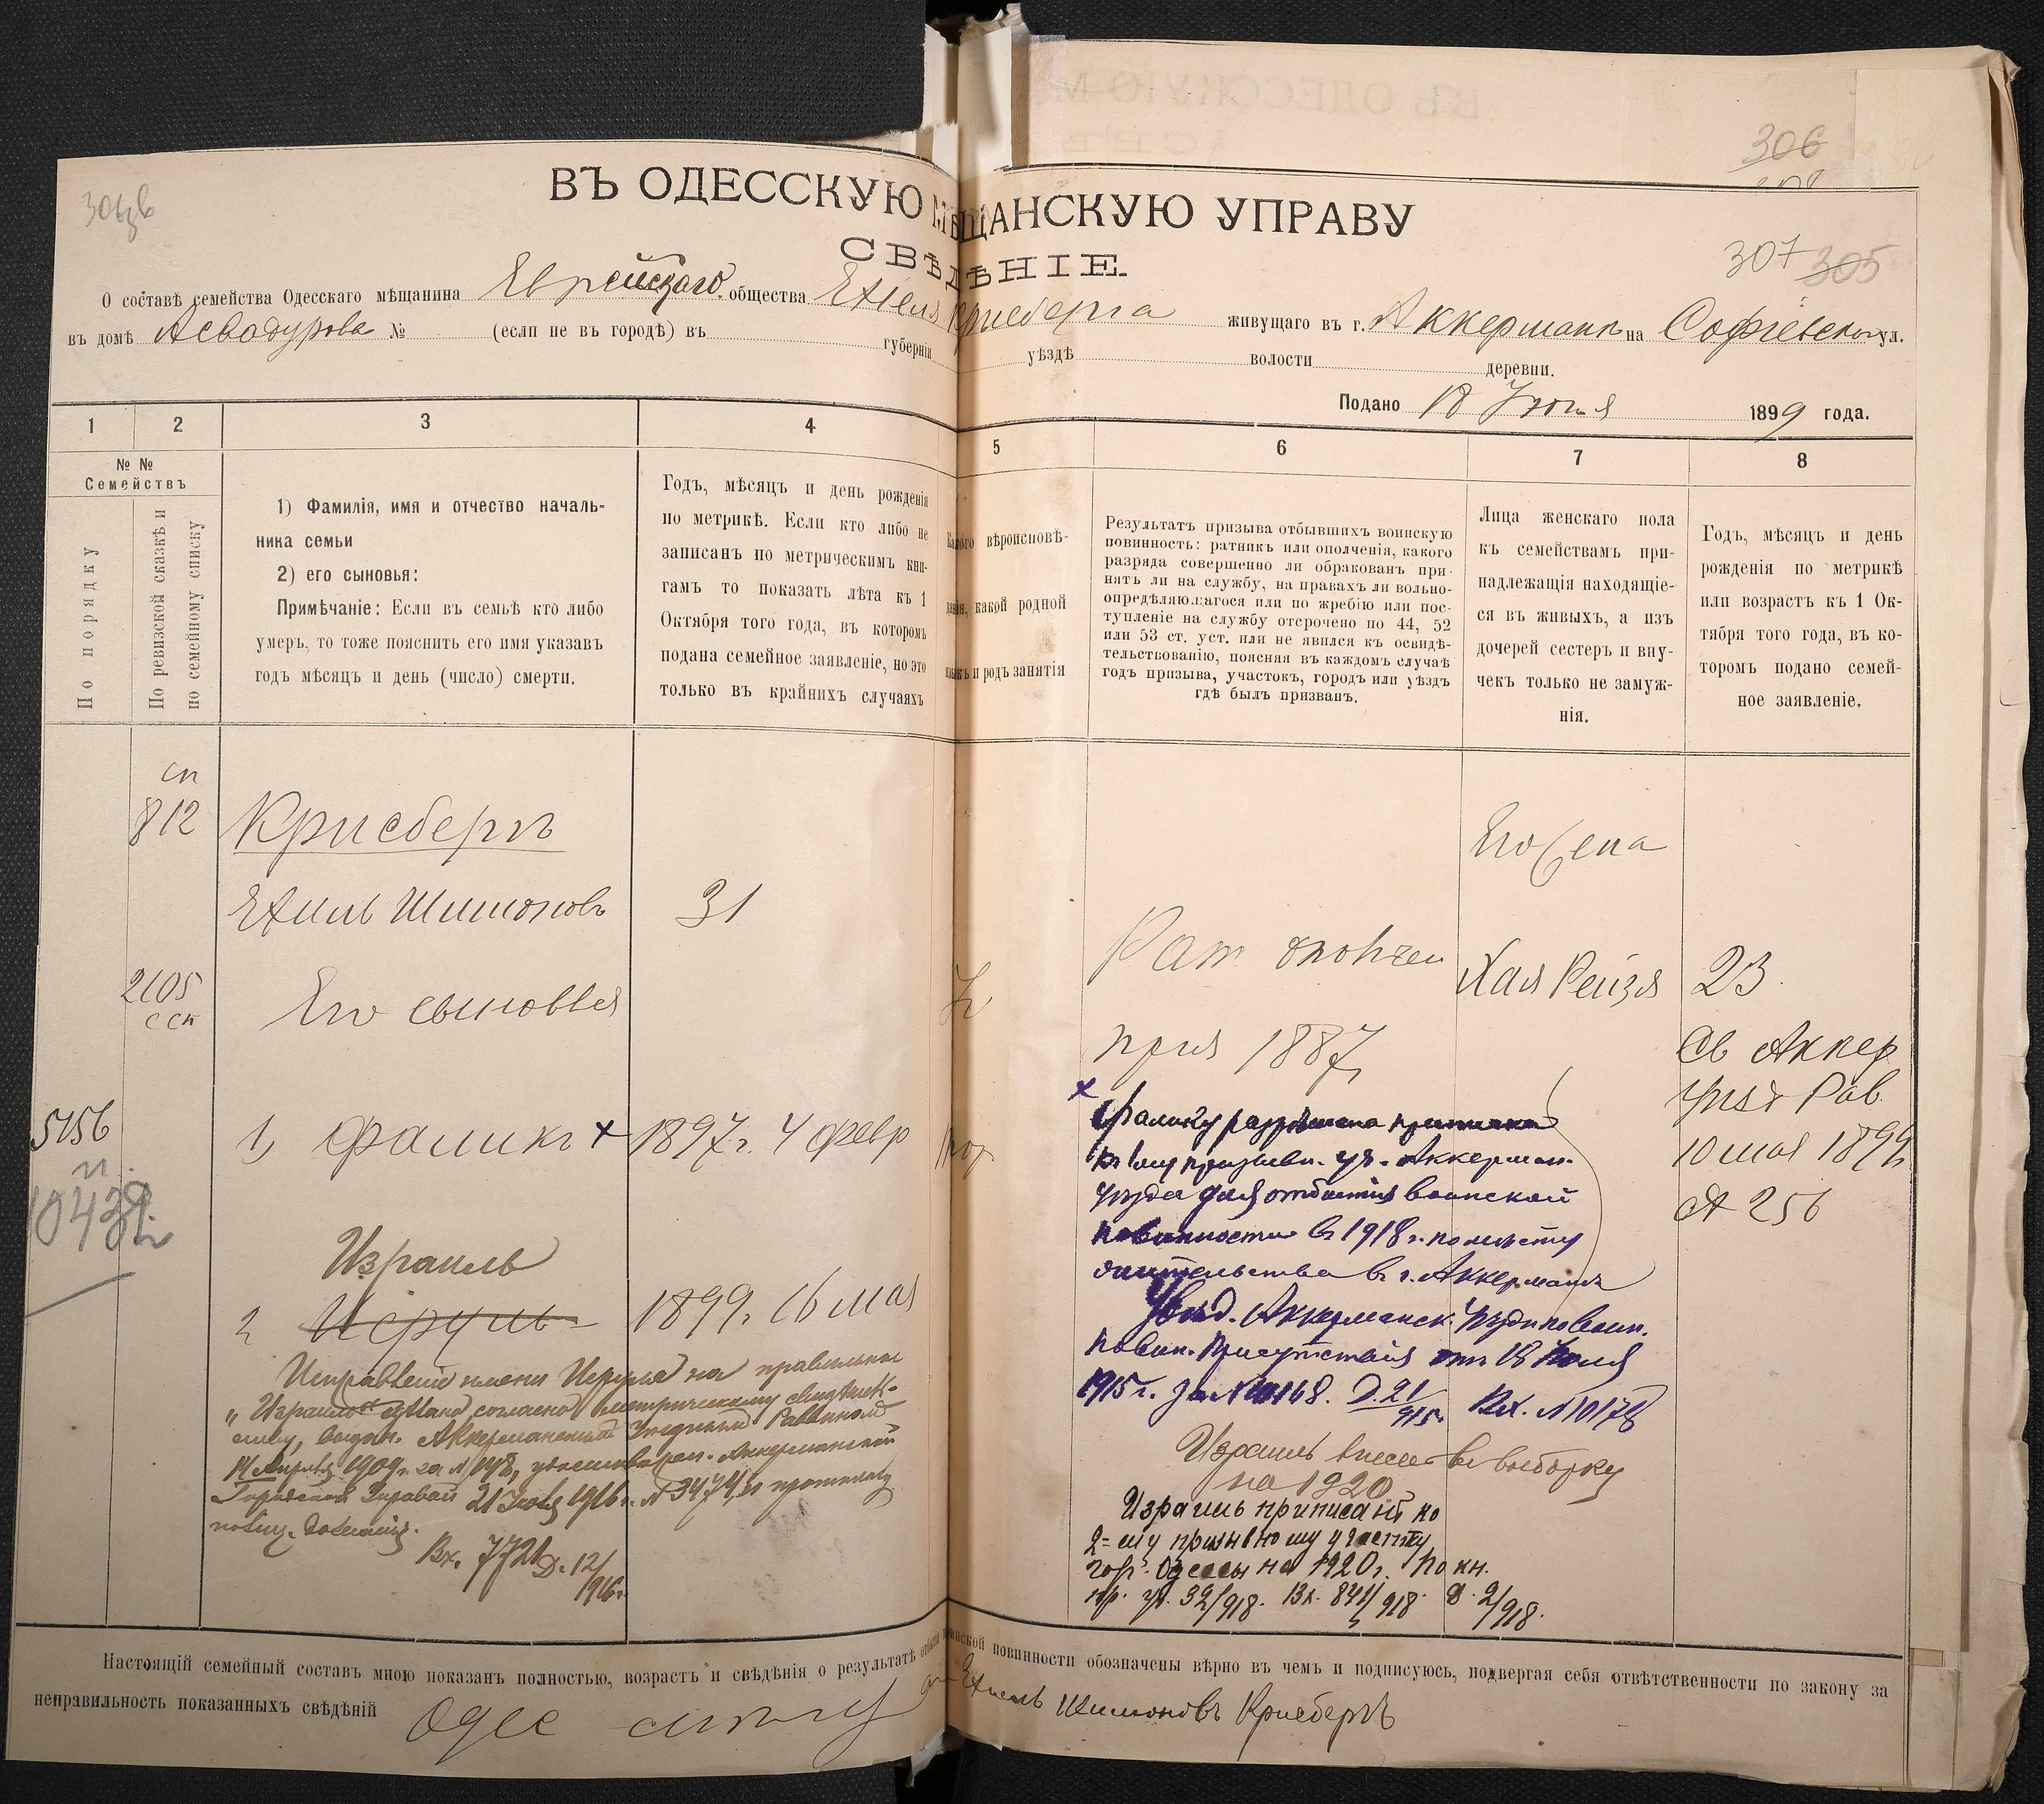 306
307 305
ВЪ ОДЕССКУЮ МѢЩАНСКУЮ УПРАВУ
СВѢДѢНІЕ.
О составѣ семейства Одесскаго мѣщанина Еврейскаго общества Ехиля Крисберга живущаго въ г. Аккерманъ на Софіевской ул.
въ домѣ Асвадурова № (если не въ городѣ) въ губерніи уѣздѣ волости деревни.
Подано 18 Іюня 1899 года.
1 2 3 4 5 6 7 8
№ №
Семействъ
По порядку
По ревизской сказкѣ и
по семейному списку
1) Фамилія, имя и отчество началь-
ника семьи
2) его сыновья:
Примѣчаніе: Если въ семьѣ кто либо
умеръ, то тоже пояснить его имя указавъ
годъ мѣсяцъ и день (число) смерти.
Годъ, мѣсяцъ и день рожденія
по метрикѣ. Если кто либо не
записанъ по метрическимъ кни-
гамъ то показать лѣта къ 1
Октября того года, въ которомъ
подана семейное заявленіе, но это
только въ крайнихъ случаяхъ
Какого вѣроисповѣ-
данія, какой родной
языкъ и родъ занятія
Результатъ призыва отбывшихъ воинскую
повинность: ратникъ или ополченія, какого
разряда совершенно ли обракованъ при-
нятъ ли на службу, на правахъ ли вольно-
опредѣляющагося или по жребію или пос-
тупленіе на службу отсрочено по 44, 52
или 53 ст. уст. или не явился къ освидѣ-
тельствованію, поясняя въ каждомъ случаѣ
годъ призыва, участокъ, городъ или уѣздъ
гдѣ былъ призванъ.
Лица женскаго пола
къ семействамъ при-
надлежащія находящіе-
ся въ живыхъ, а изъ
дочерей сестеръ и вну-
чекъ только не замуж-
нія.
Годъ, мѣсяцъ и день
рожденія по метрикѣ
или возрастъ къ 1 Ок-
тября того года, въ ко-
торомъ подано семей-
ное заявленіе.
сп
812
Крисбергъ
Ехиль Шимоновъ 31
2105
сск
Его сыновья
5156
1) Фаликъ + 1897 г. 4 февр
Израиль
2 Исруль 1899 г. 16 мая
Исправленіе имени Исруля на правильное
„Израиль" сдѣлано согласно метрическому свидѣтель-
ству, выдан. Аккерманскимъ Уѣзднымъ Раввиномъ
14 Апрѣля 1909 г. за № 148, удостоверен. Аккерманской
Городской Управой 21 Іюля 1916 г. № 3474, и протоколу
Вх. 7721 Д. 12/1916 г.
Его жена
Рат ополчен
Хая Рейзя 23
приз 1887 г
Св Аккер
Уѣзд Рав.
10 мая 1899 г
№ 256
+ Фалику разрѣшена приписка
къ 1 му призывн. уч. Аккерман.
Уѣзда для отбытія воинской
повинности въ 1918 г. по мѣсту
жительства въ г. Аккерманѣ
Увѣд. Аккерманск. Уѣздн по воин.
повин. Присутствія отъ 18 Іюля
1915 г. за № 10168. Д. 21/915 Вх. № 10178
Израиль внесен въ выборку
на 1920
Израиль приписанъ ко
2-му призывному участку
гор. Одессы на 1920 г. По кн.
пр. уч. 32/918. Вх. 841/918 Д. 2/918.
Настоящій семейный составъ мною показанъ полностью, возрастъ и свѣдѣнія о результатѣ отбытія воинской повинности обозначены вѣрно въ чемъ и подписуюсь, подвергая себя отвѣтственности по закону за
неправильность показанныхъ свѣдѣній Одес Ехиель Шимоновъ Крисбергъ